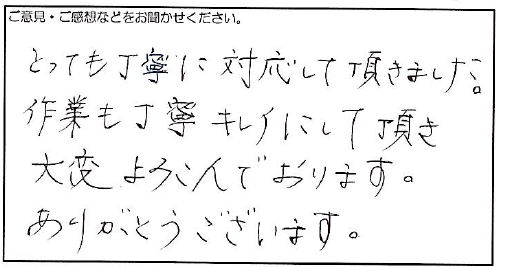 ご意見・ご感想などをお聞かせください。
とっても丁寧に対応して頂きました。
作業も丁寧キレイにして頂き
大変よろこんでおります。
ありがとうございます。